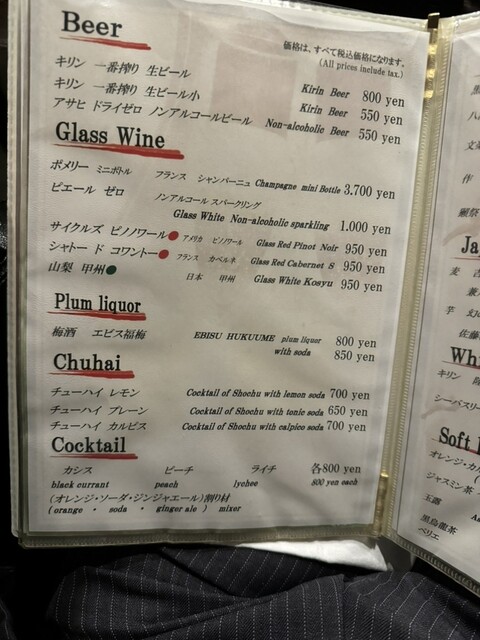 Beer
価格は、すべて税込価格になります。
(All prices include tax.)
キリン 一番搾り 生ビール Kirin Beer 800 yen
キリン 一番搾り 生ビール小 Kirin Beer 550 yen
アサヒ ドライゼロ ノンアルコールビール Non-alcoholic Beer 550 yen
Glass Wine
ポメリー ミニボトル フランス シャンパーニュ Champagne mini Bottle 3.700 yen
ピエール ゼロ ノンアルコール スパークリング
Glass White Non-alcoholic sparkling 1.000 yen
サイクルズ ピノノワール アメリカ ピノノワール Glass Red Pinot Noir 950 yen
シャトー ド コワントー フランス カベルネ Glass Red Cabernet S 950 yen
山梨 甲州 日本 甲州 Glass White Kosyu 950 yen
Plum liquor
梅酒 エビス福梅 EBISU HUKUUME plum liquor 800 yen
with soda 850 yen
Chuhai
チューハイ レモン Cocktail of Shochu with lemon soda 700 yen
チューハイ プレーン Cocktail of Shochu with tonic soda 650 yen
チューハイ カルピス Cocktail of Shochu with calpico soda 700 yen
Cocktail
カシス ピーチ ライチ 各800 yen
black currant peach lychee 800 yen each
(オレンジ・ソーダ・ジンジャエール)割り材
(orange ・ soda ・ ginger ale) mixer
作
Ja
麦
芋
Wh
キリン
シーバスリー
Soft
オレンジ・カル
ジャスミン茶
玉露
黒烏龍茶
ペリエ